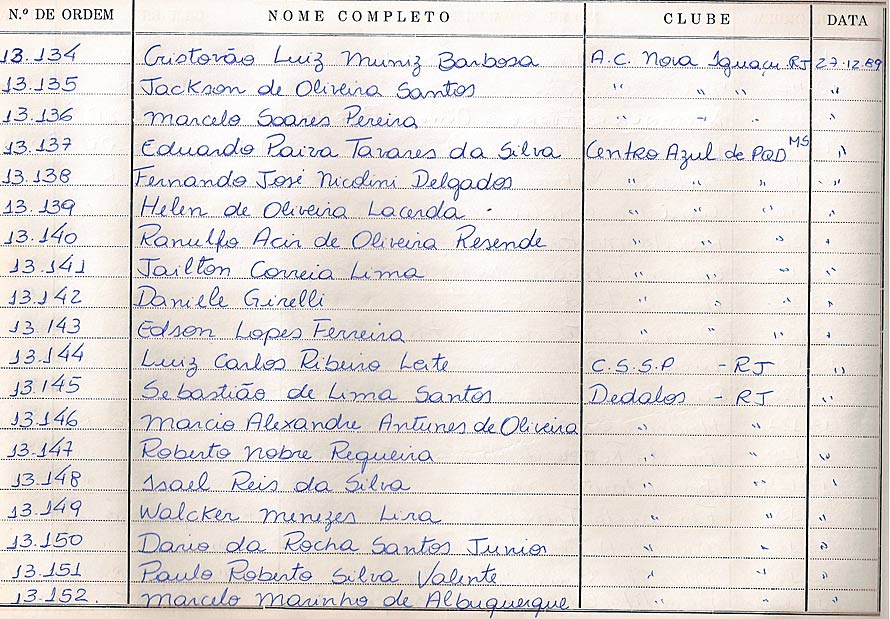 N.º DE ORDEM NOME COMPLETO CLUBE DATA
13.134 Cristovão Luiz Muniz Barbosa A.C. Nova Iguaçu RJ 27.12.89
13.135 Jackson de Oliveira Santos " " " "
13.136 Marcelo Soares Pereira " " " "
13.137 Eduardo Paiva Tavares da Silva Centro Azul de PQD MS "
13.138 Fernando José Nicolini Delgados " " " "
13.139 Helen de Oliveira Lacerda " " " "
13.140 Ranulfo Acir de Oliveira Resende " " " "
13.141 Jailton Correia Lima " " " "
13.142 Daniele Girelli " " " "
13.143 Edson Lopes Ferreira " " " "
13.144 Luiz Carlos Ribeiro Leite C.S.S.P - RJ "
13.145 Sebastião de Lima Santos Dedalos - RJ "
13.146 Marcio Alexandre Antunes de Oliveira " " "
13.147 Roberto Nobre Regueira " " "
13.148 Isael Reis da Silva " " "
13.149 Walcker Menezes Lira " " "
13.150 Dario da Rocha Santos Junior " " "
13.151 Paulo Roberto Silva Valente " " "
13.152. Marcelo Marinho de Albuquerque " " "